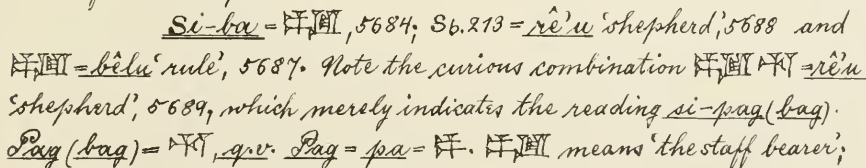 Si-ba = 𒉺𒇻, 5684; Sb. 213 = rê'u 'shepherd', 5688 and
𒉺𒇻 = bêlu 'rule', 5687. Note the curious combination 𒉺𒇻 𒄷 = rê'u
'shepherd', 5689, which merely indicates the reading si-pag (bag).
Pag (bag) = 𒄷, q.v. Pag = pa = 𒉺. 𒉺𒇻 means 'the staff bearer';